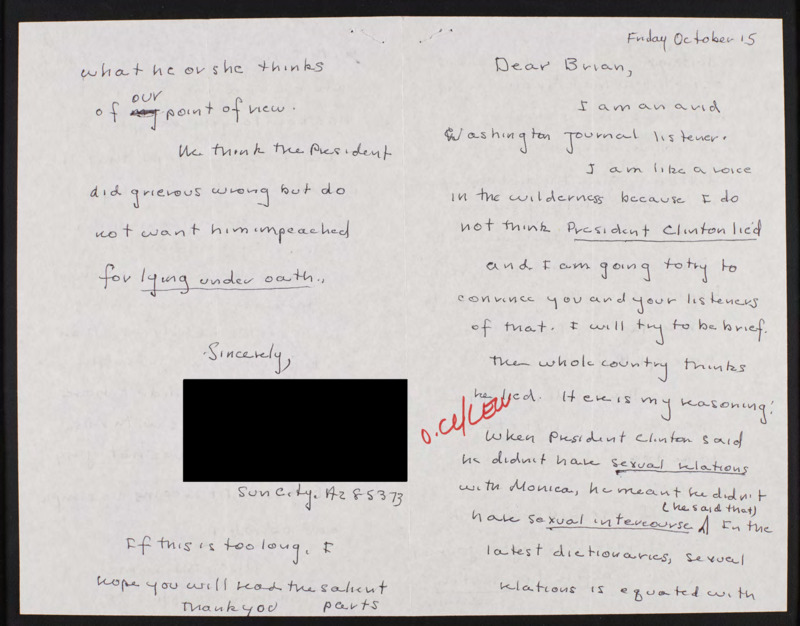 Friday October 15
Dear Brian,
I am an avid
Washington Journal listener.
I am like a voice
in the wilderness because I do
not think President Clinton lied
and I am going to try to
convince you and your listeners
of that. I will try to be brief.
The whole country thinks
he lied. Here is my reasoning:
When President Clinton said
he didn't have sexual relations
with Monica, he meant he didn't
(he said that)
have sexual intercourse. In the
latest dictionaries, sexual
relations is equated with
what he or she thinks
our
of my point of view.
We think the President
did grievous wrong but do
not want him impeached
for lying under oath.
Sincerely,
Sun City, AZ 85373
If this is too long, I
hope you will read the salient
Thank you parts